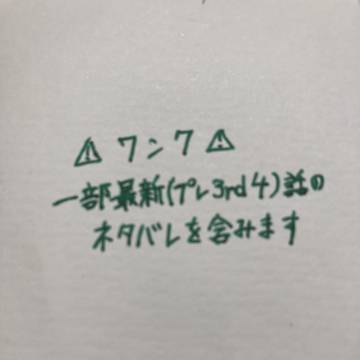 ⚠ワンク⚠
一部最新(プレ3rd4)話の
ネタバレを含みます